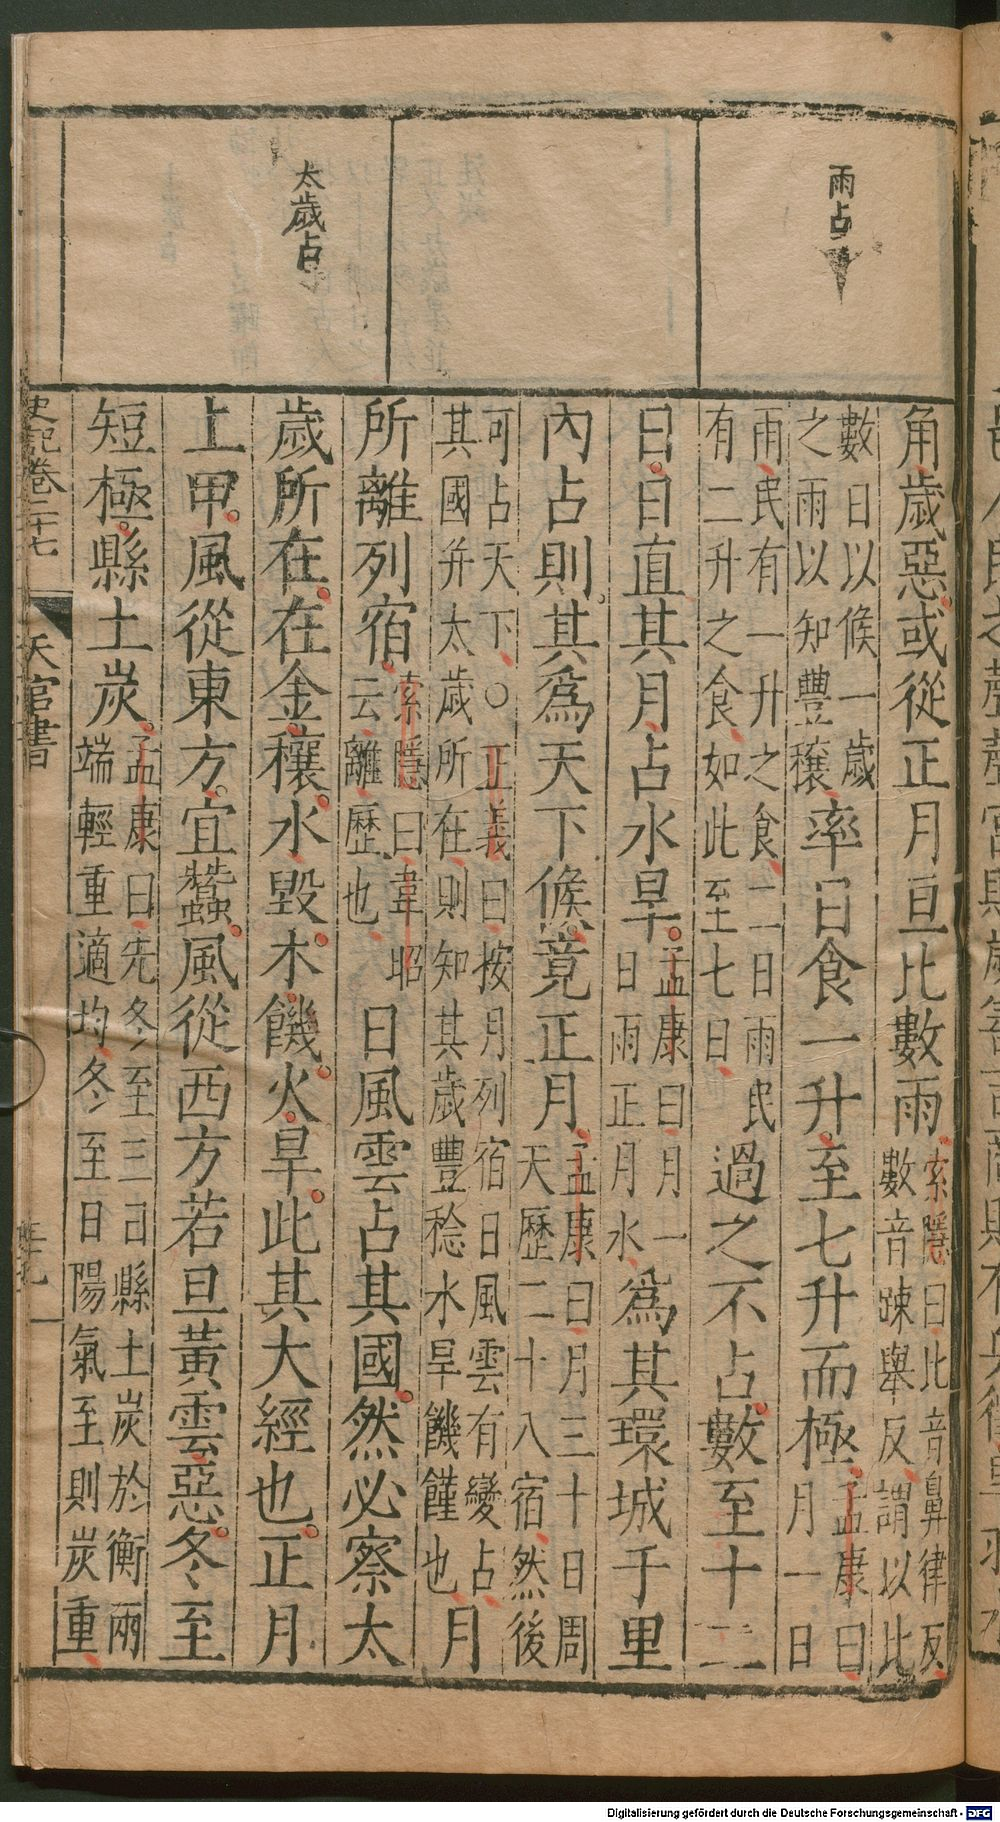 雨占
太歲占
角歲惡或從正月旦比數雨索隱曰比音鼻律反數音疎舉反謂以比
數日以候一歲之雨以知豐穰率日食一升至七升而極孟康曰月一日
雨民有一升之食二日雨民有二升之食如此至七日過之不占數至十二
日日直其月占水旱孟康曰月一日雨正月水爲其環城千里
內占則其爲天下候竟正月孟康曰月三十日周天歷二十八宿然後
可占天下○正義曰按月列宿日風雲有變占其國并太歲所在則知其歲豐稔水旱饑饉也月
所離列宿索隱曰韋昭云離歷也日風雲占其國然必察太
歲所在在金穰水毀木饑火旱此其大經也正月
上甲風從東方宜蠶風從西方若旦黃雲惡冬至
短極縣土炭孟康曰先冬至三日縣土炭於衡兩端輕重適均冬至日陽氣至則炭重
史記卷二十七 天官書
Digitalisierung gefördert durch die Deutsche Forschungsgemeinschaft - DFG